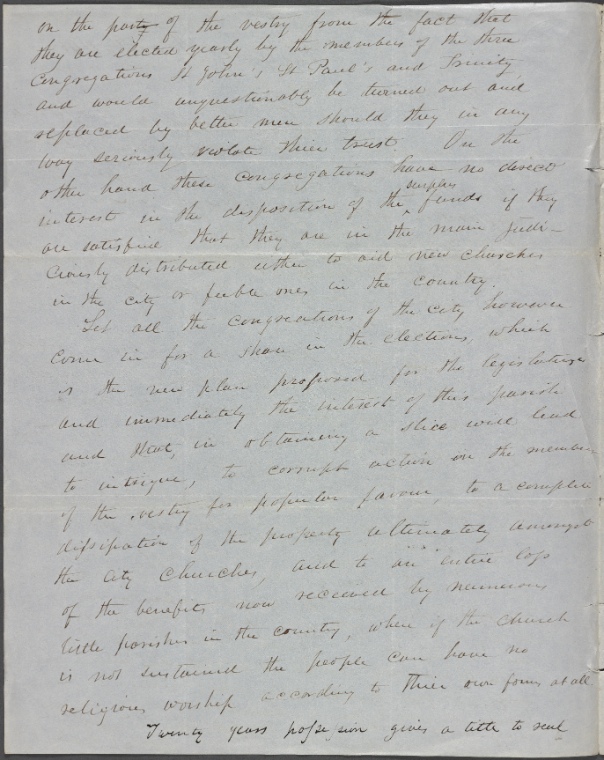 on the party of the vestry from the fact that
they are elected yearly by the members of the three
Congregations St John's St Paul's and Trinity
and would unquestionably be turned out and
replaced by better men should they in any
way seriously violate thier trust. On the
other hand these congregations have no direct
interest in the disposition of the surplus funds if they
are satisfied that they are in the main judi-
ciously distributed either to aid new churches
in the city or feeble ones in the country.
Let all the congreations of the city however
come in for a share in the elections, which
is the new plan proposed for the legislature
and immediately the interest of this parish
and that, in obtaining a slice will lead
to intrigue, to corrupt action on the members
of the vestry for popular favour, to a complete
dissipation of the property ultimately amongst
the city churches, and to an entire loss
of the benefits now received by numerous
little parishes in the country, where if the church
is not sustained the people can have no
religious worship according to thier own forms at all.
Twenty years possession gives a title to real